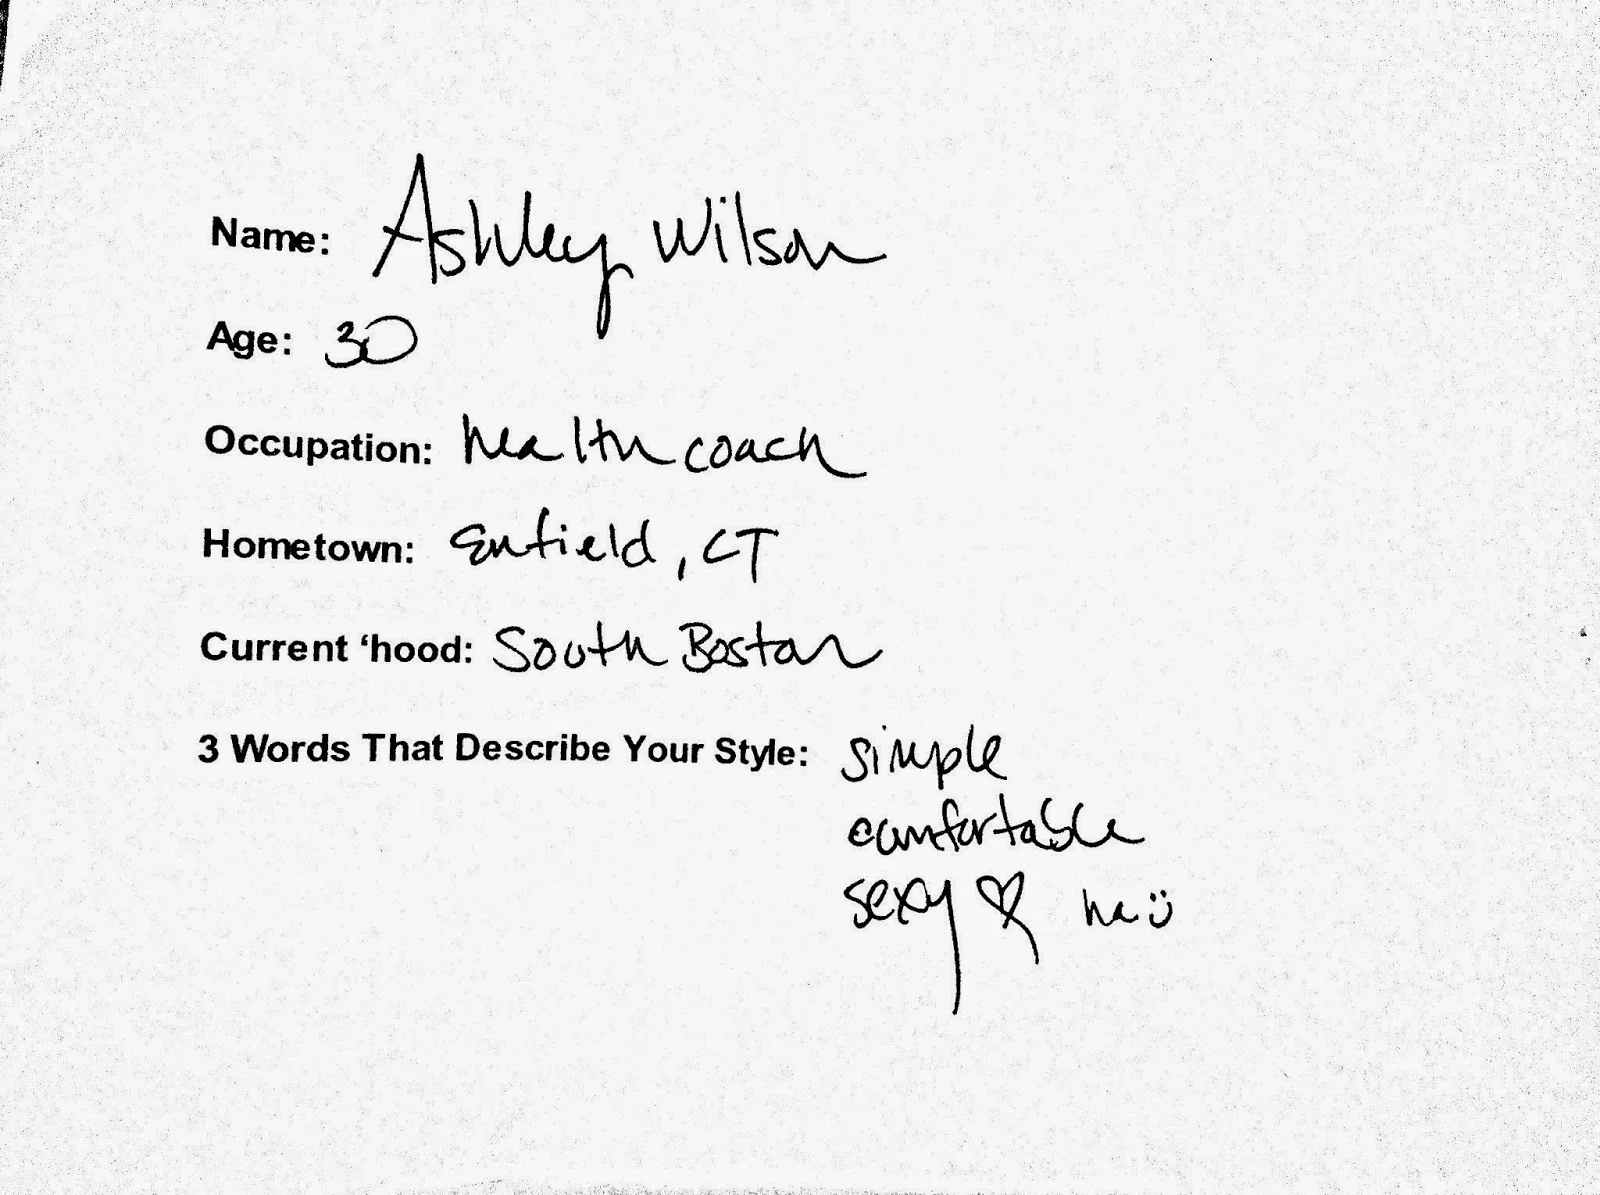 Name: Ashley Wilson
Age: 30
Occupation: health coach
Hometown: Enfield, CT
Current ‘hood: South Boston
3 Words That Describe Your Style: simple
comfortable
sexy ♡ ha ü